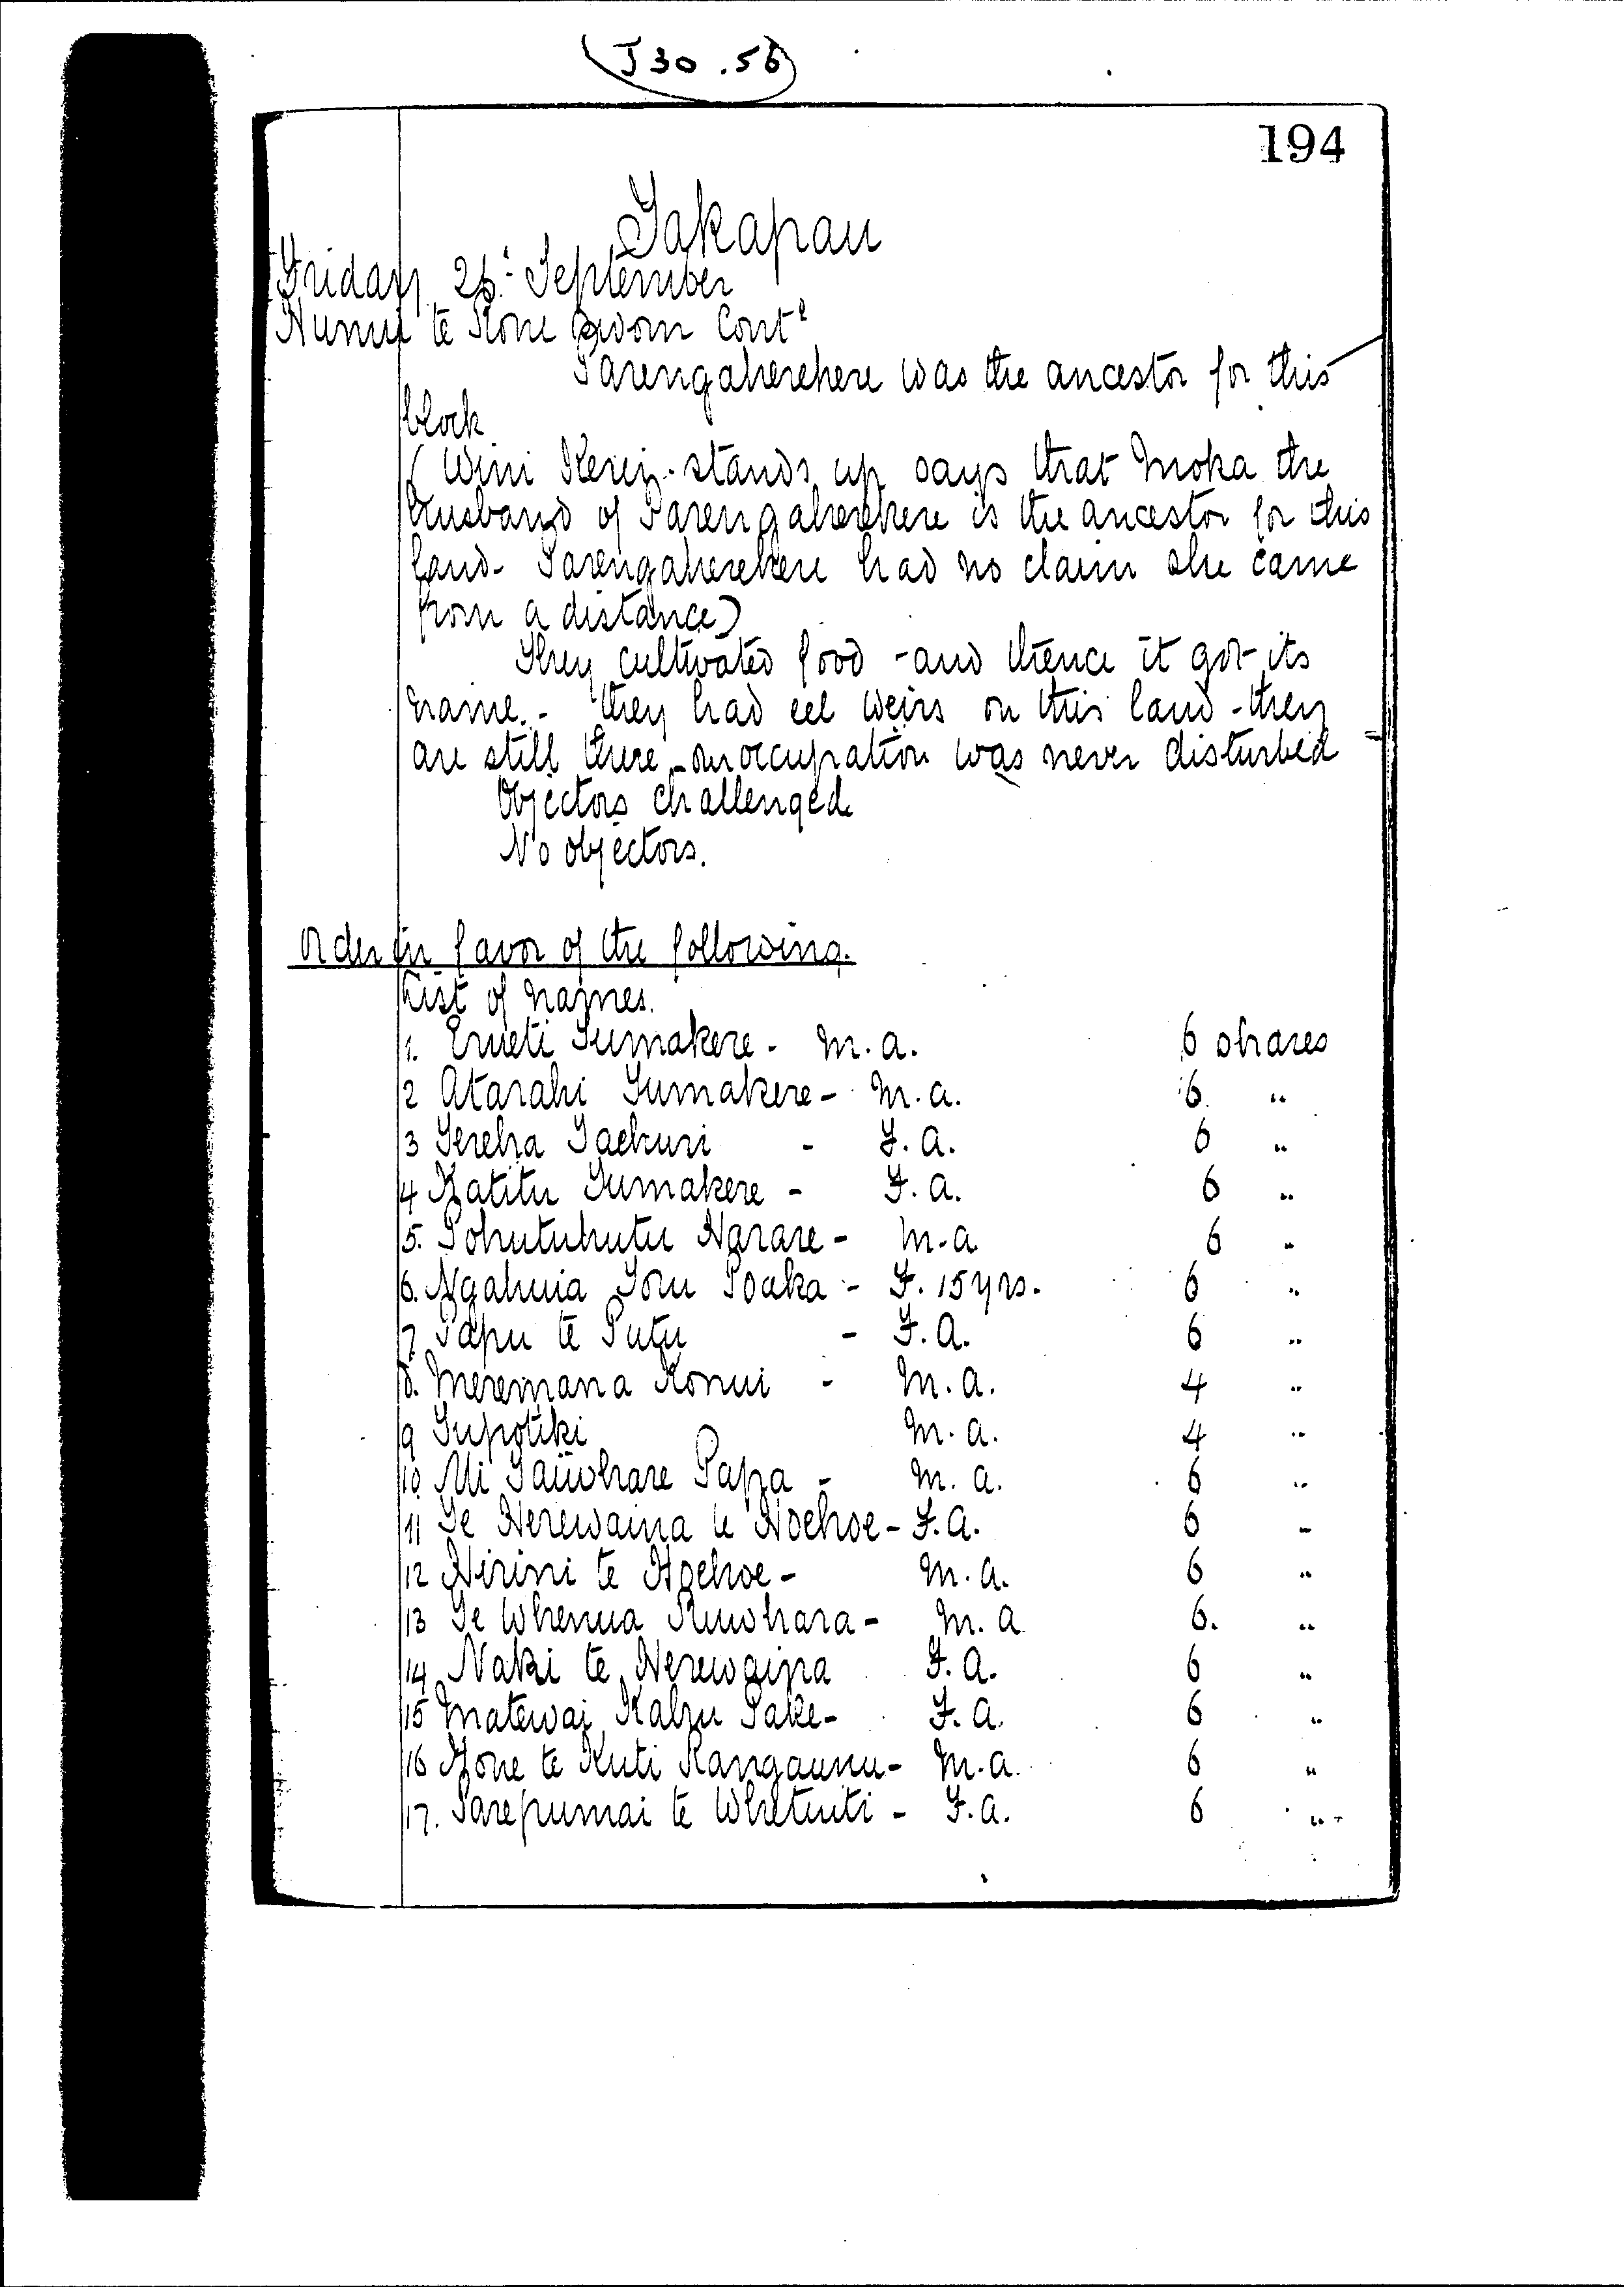 J 30 . 56
194
Takapau
Friday 26th September
Hunui te Rone sworn Contd
Parengaherehere was the ancestor for this
block
(Wini Kerei stands up says that Moka the
husband of Parengaherehere is the ancestor for this
land - Parengaherehere had no claim she came
from a distance)
They cultivated food - and thence it got its
name. - they had eel weirs on this land - they
are still there - our occupation was never disturbed -
Objectors challenged
No objectors.
Order in favor of the following.
List of names.
1. Erueti Tumakere - M. A. 6 shares
2 Atarahi Tumakere - M. A. 6 "
3 Tereha Taekuri - F. A. 6 "
4 Katitu Tumakere - F. A. 6 "
5. Pohutuhutu Harare - M. A 6 "
6. Ngahuia Toru Poaka - F. 15 yrs. 6 "
7 Papu te Putu - F. A. 6 "
8. Meremana Konui - M. A. 4 "
9 Tupotiki M. A. 4 "
10 Mi Taiwhare Papa - M. A. 6 "
11 Te Herewaina te Hoehoe - F. A. 6 "
12 Hirini te Hoehoe - M. A. 6 "
13 Te Whenua Ruwhara - M. A 6. "
14 Naki te Herewaina F. A. 6 "
15 Matewai Kahu Pake - F. A. 6 "
16 Hone te Kuti Rangaunu - M. A. 6 "
17. Parepumai te Whetuiti - F. A. 6 "